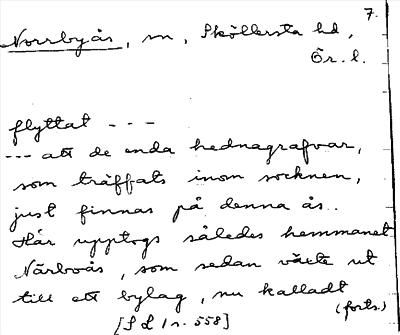 7.
Norrbyås, sn, Sköllersta hd,
Ör. l.
flyttat - - -
--- att de enda hednagrafvar,
som träffats inom socknen,
just finnas på denna ås..
Här upptogs således hemmanet
Närboås, som sedan växte ut
till ett bylag, nu kalladt
(forts.)
[S L 1 s. 558]